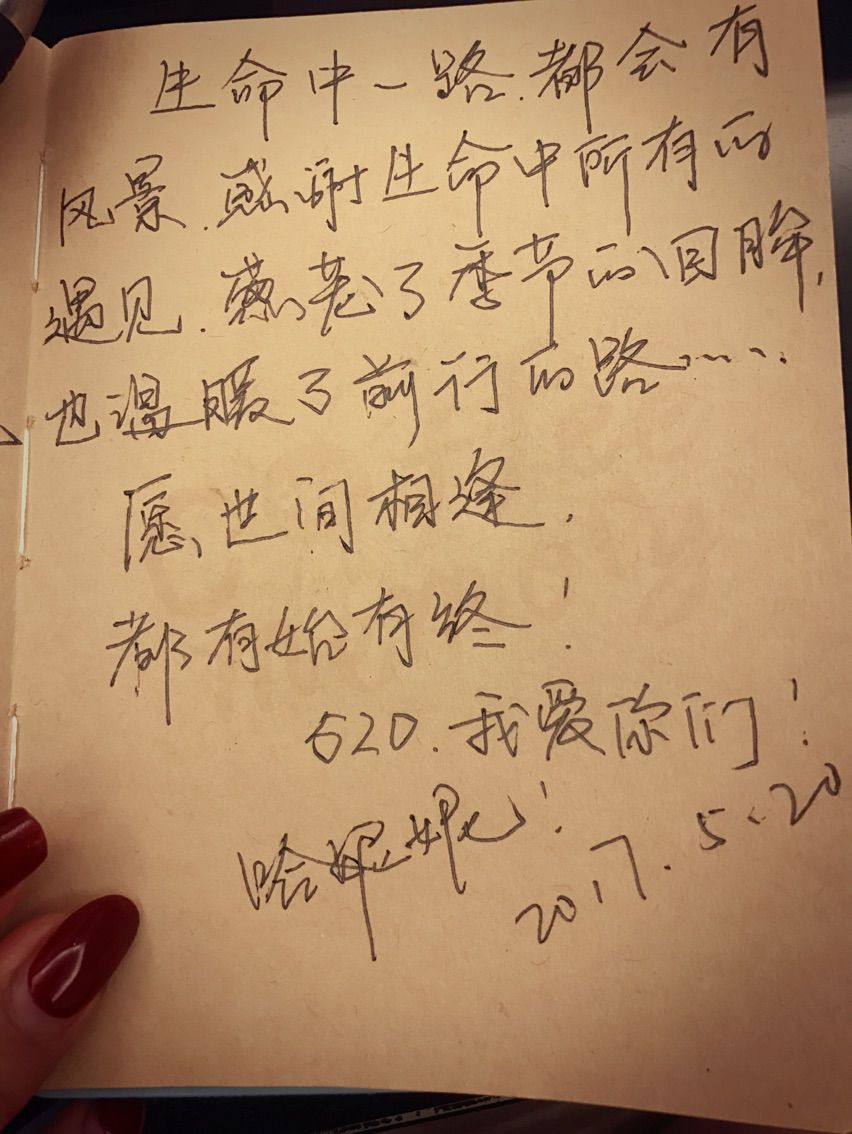 生命中一路.都会有
风景.感谢生命中所有的
遇见.葱茏了季节的回眸,
也温暖了前行的路……
愿世间相逢,
都有始有终!
520.我爱你们!
哈妮妮!
2017.5.20